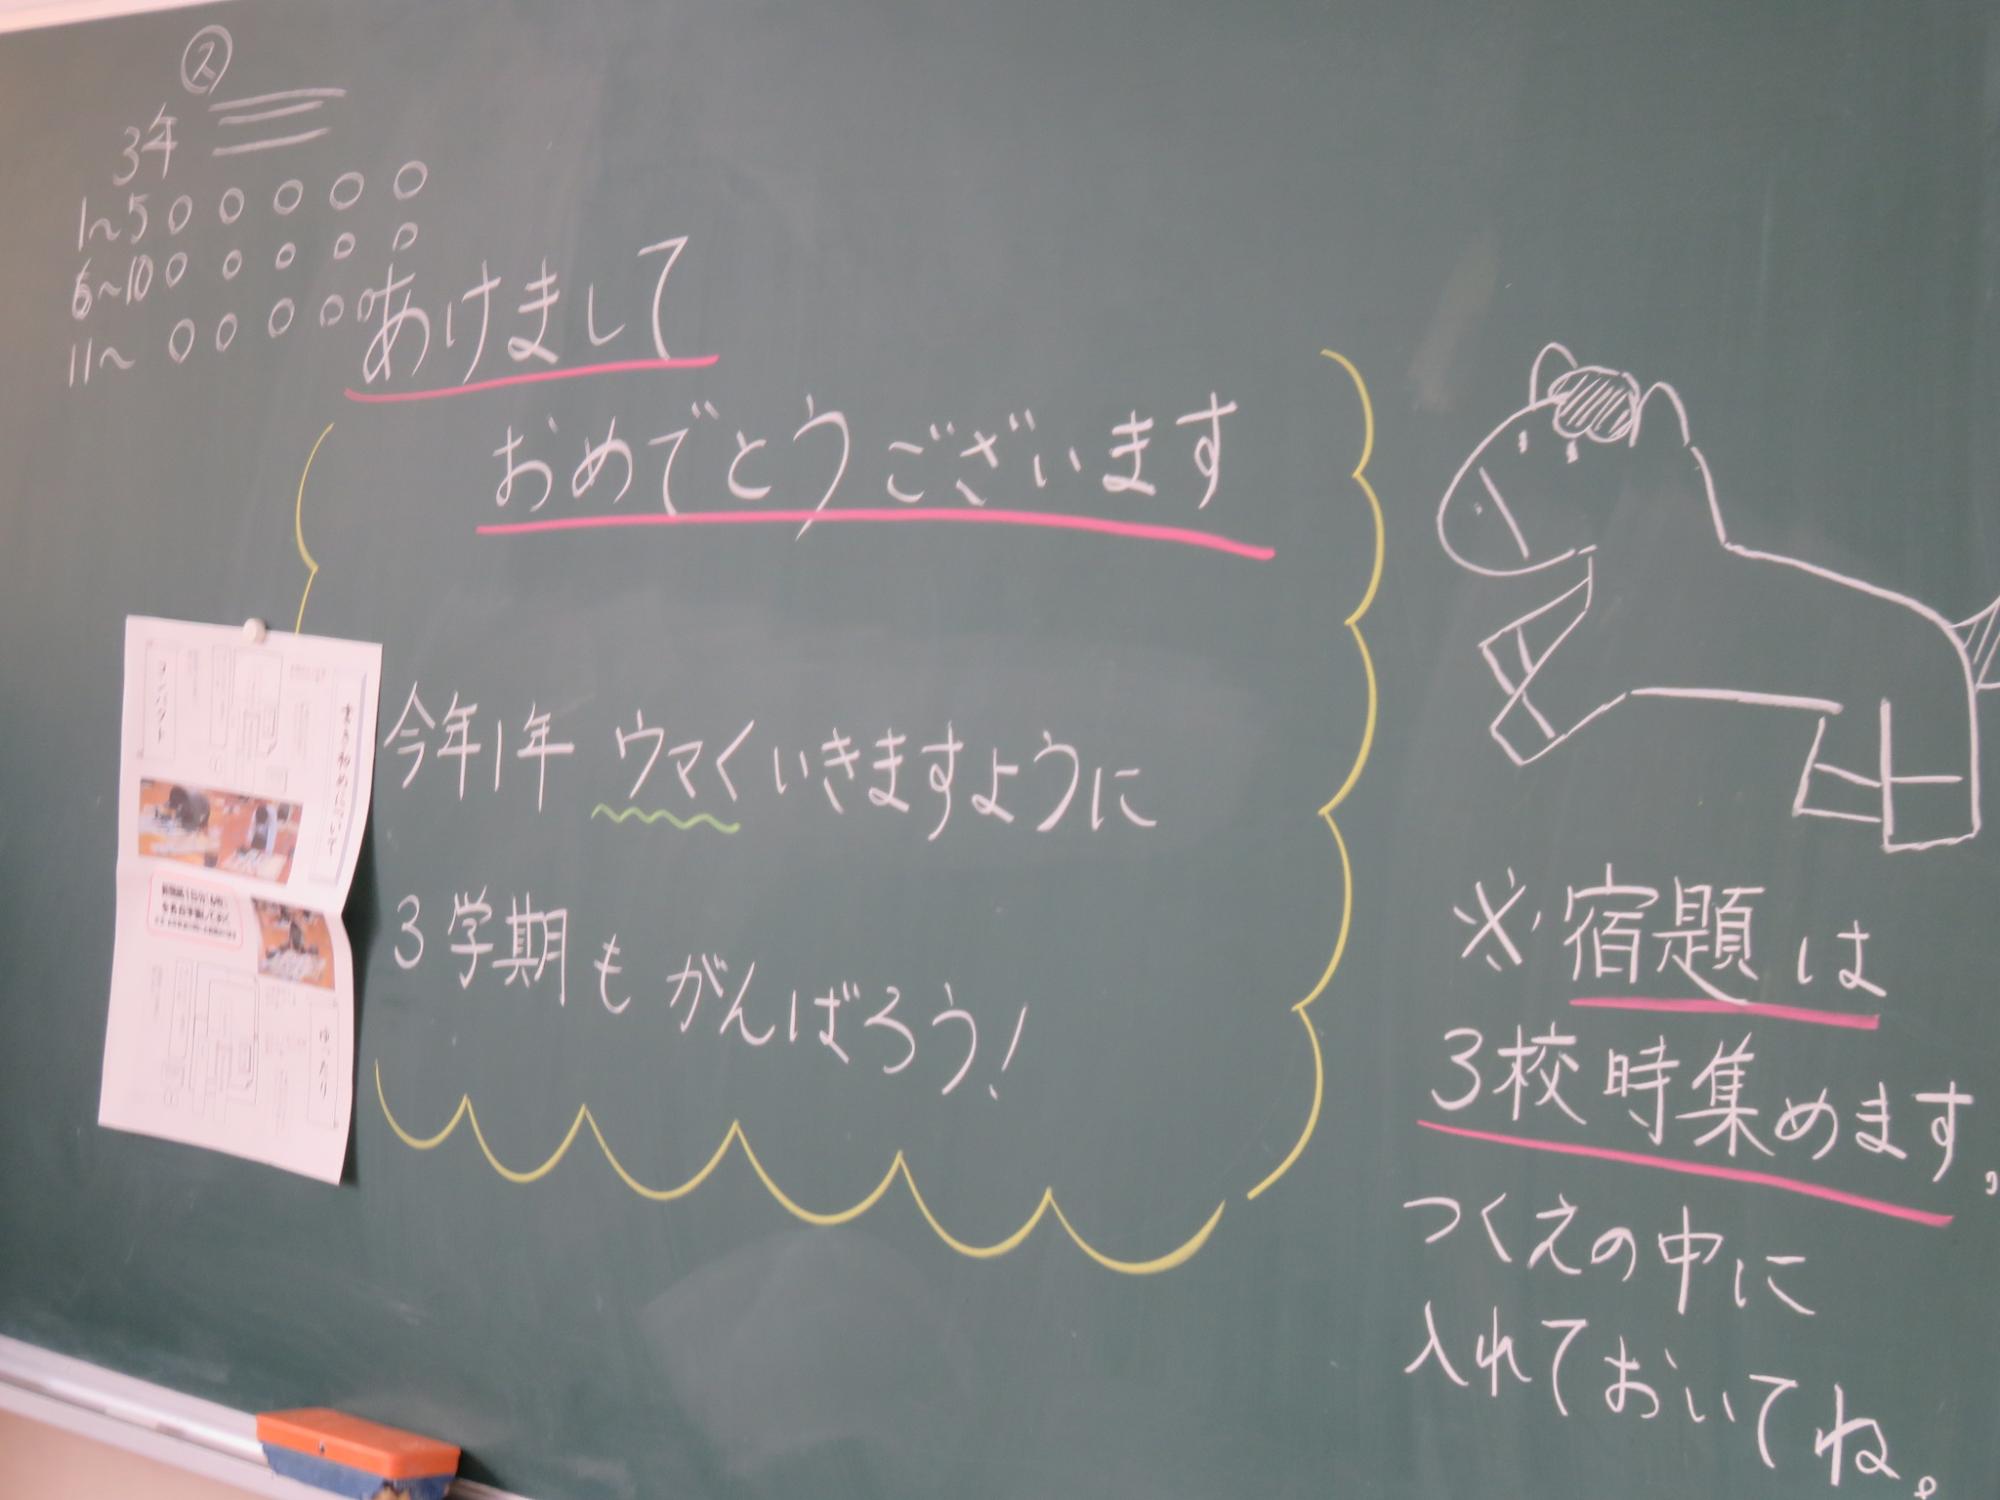 ス
3年
1～5 ○○○○○
6～10 ○○○○○
11～ ○○○○○
あけまして
おめでとうございます
今年1年 ウマくいきますように
3学期もがんばろう!
※宿題は
3校時集めます。
つくえの中に
入れておいてね。